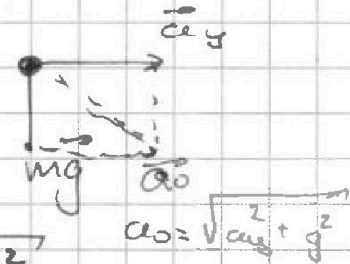 a⃗y
mg⃗ a⃗₀
a₀ = √(ay² + g²)
2